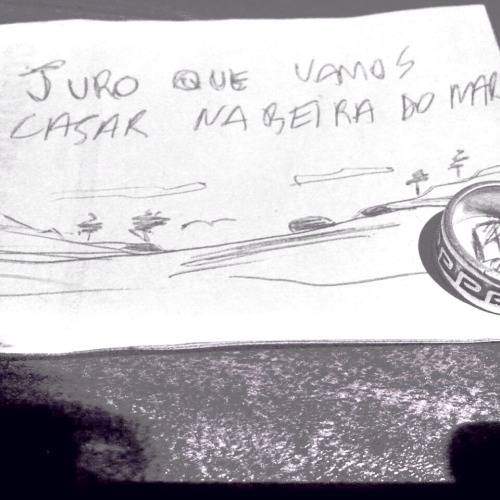 JURO QUE VAMOS
CASAR NA BEIRA DO MAR